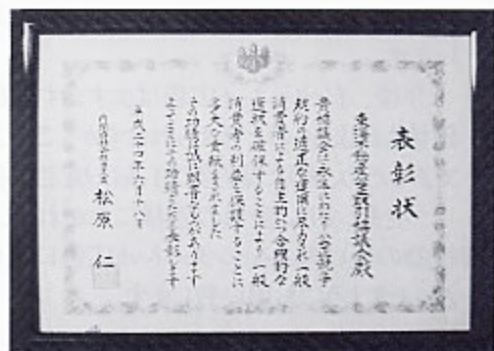 表彰状
東海不動産公正取引協議会殿
貴協議会は永年にわたり公正競争
規約の適正な運用に尽力され一般
消費者による自主的かつ合理的な
選択を確保することにより一般
消費者の利益を保護することに
多大な貢献をされました
その功績は誠に顕著なものがあります
よってここにその功績をたたえ表彰します
平成二十四年六月十八日
内閣府特命担当大臣 松原 仁